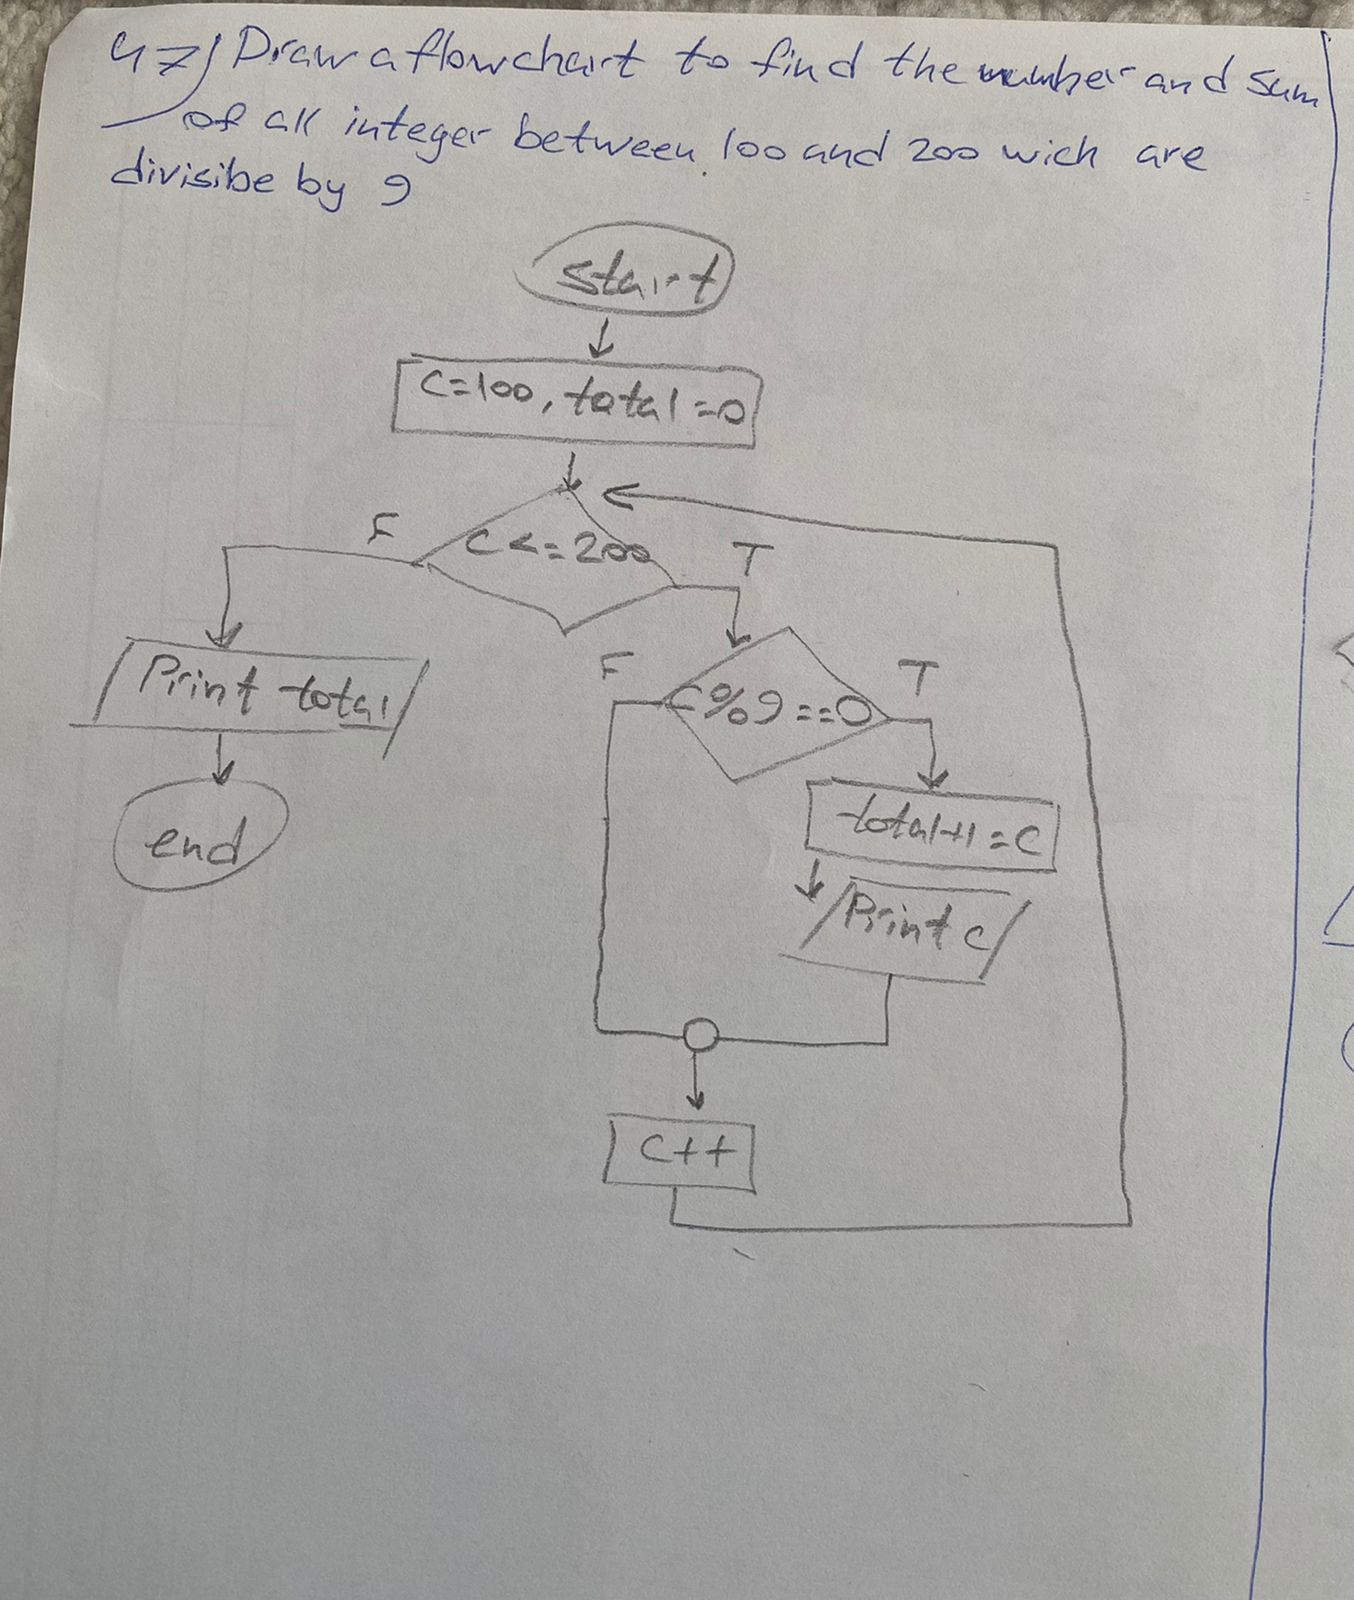 47) Draw a flowchart to find the number and sum
of all integer between 100 and 200 wich are
divisibe by 9
start
c=100, total=0
F
c<=200
T
Print total
F
c%9==0
T
end
total+1=c
Print c
c++